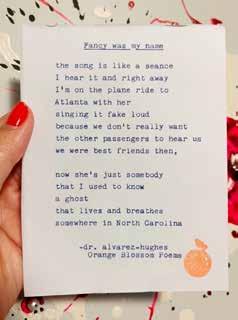 Fancy was my name
the song is like a seance
I hear it and right away
I'm on the plane ride to
Atlanta with her
singing it fake loud
because we don't really want
the other passengers to hear us
we were best friends then,
now she's just somebody
that I used to know
a ghost
that lives and breathes
somewhere in North Carolina
-dr. alvarez-hughes
Orange Blossom Poems